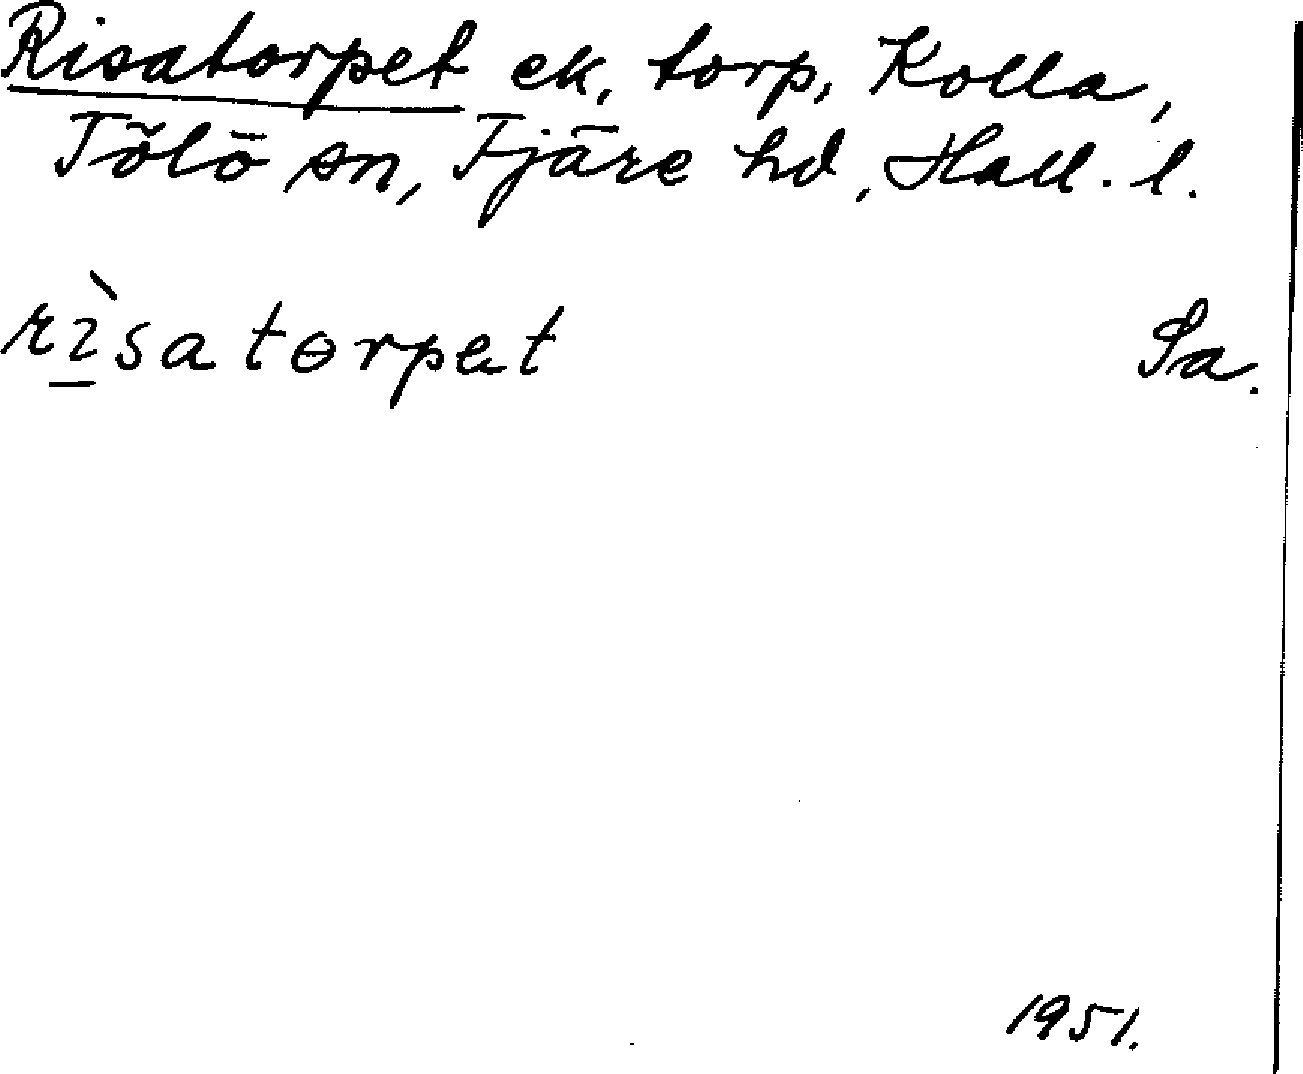 Risatorpet ek, torp, Kolla,
Tölö sn, Fjäre hd, Hall. l.
rìsatɵrpet Sa.
1951.